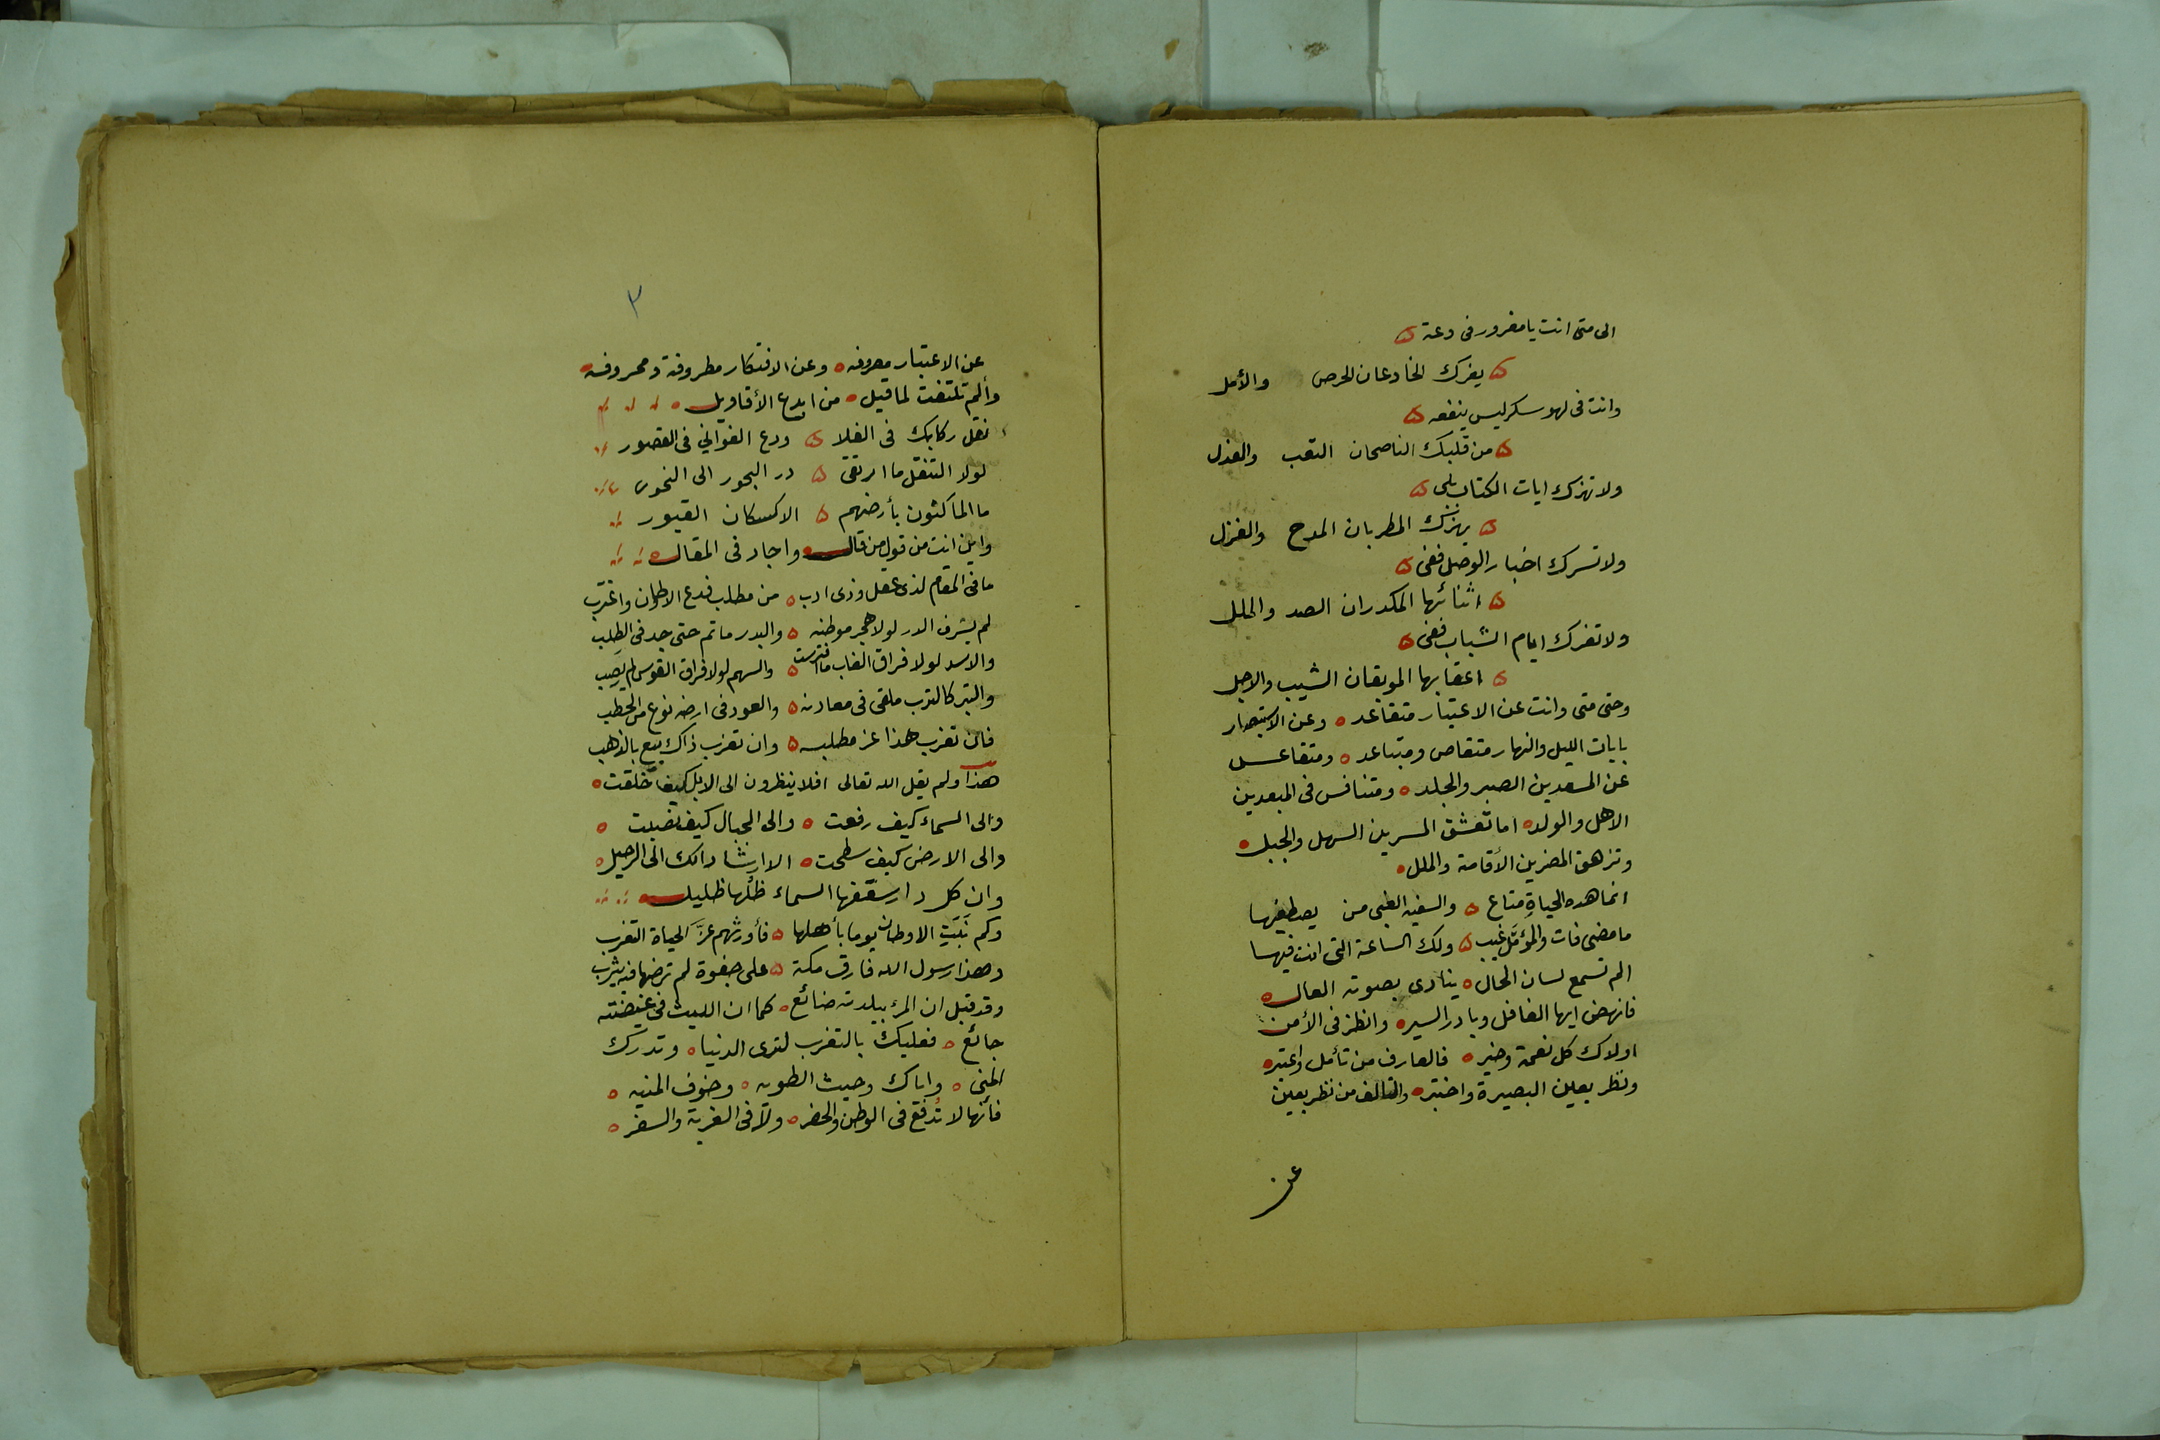 الى متى انت يا مغرور فى دعة
يغرك الخادعان الحرص والأمل
وانت فى لهو سكر ليس ينفعه
من قلبك الناصحان التعب والعذل
ولا تهزك ايات الكتاب بلى
يهزك المطربان المدح والغزل
ولا تسرك اخبار الوصل ففى
اثنائها المكدران الصد والملل
ولا تغرك ايام الشباب ففى
اعقابها الموبقان الشيب والاجل
وحتى متى وانت عن الاعتبار متقاعد وعن الاستبصار
بايات الليل والنهار متقاص ومتباعد ومتقاعس
عن المسعدين الصبر والجلد ومتنافس فى المبعدين
الاهل والولد اما تعشق المسرين السهل والجبل
وتزهق المضرين الأقامة والملل
انما هذه الحياة متاع والسفيه الغبى من يصطفيها
ما مضى فات والمؤمَّل غيب ولك الساعة التى انت فيها
الم تسمع لسان الحال ينادى بصوته العال
فانهض ايها الغافل وبادر السير وانظر فى الأمن
اولاك كل نعمة وخير فالعارف من تأمل واعتبر
ونظر بعين البصيرة واختبر والتالف من نظر بعين
عن
٣
عن الاعتبار مصروفه وعن الافتكار مطروفة ومحروفه
وألم تلتفت لما قيل من ابدع الأقاويل
نقل ركابك فى الفلا ودع الغواني فى القصور
لولا التنقل ما ارتقى در البحور الى النحور
ما الماكثون بأرضهم الا كسكان القبور
واين انت من قول من قال واجاد فى المقال
ما فى المقام لذى عقل وذى ادب من مطلب فدع الاوطان واغترب
لم يشرف الدر لولا هجر موطنه والبدر ما تم حتى جد فى الطلب
والاسد لولا فراق الغاب ما افترست والسهم لولا فراق القوس لم يصب
والتبر كالترب ملقى فى معادنه والعود فى ارضه نوع من الحطب
فان تغرب هذا عز مطلبه وان تغرب ذاك بيع بالذهب
هذا ولم يقل الله تعالى افلا ينظرون الى الابل كيف خلقت
والى السماء كيف رفعت والى الجبال كيف نصبت
والى الارض كيف سطحت الا ارشادا لك الى الرحيل
وان كل دار سقفها السماء ظلها ظليل
وكم نَبَتِ الاوطان يوما بأهلها فأورثهم عزَّ الحياة التغرب
وهذا رسول الله فارق مكة على جفوة لم ترضها فيه يثرب
وقد قيل ان المرء ببلدته ضائع كما ان الليث فى غيضته
جائع فعليك بالتغرب لترى الدنيا وتدرك
المنى واياك وحيث الطويه وخوف المنيه
فأنها لا تُدفع فى الوطن والحضر ولا فى الغربة والسفر